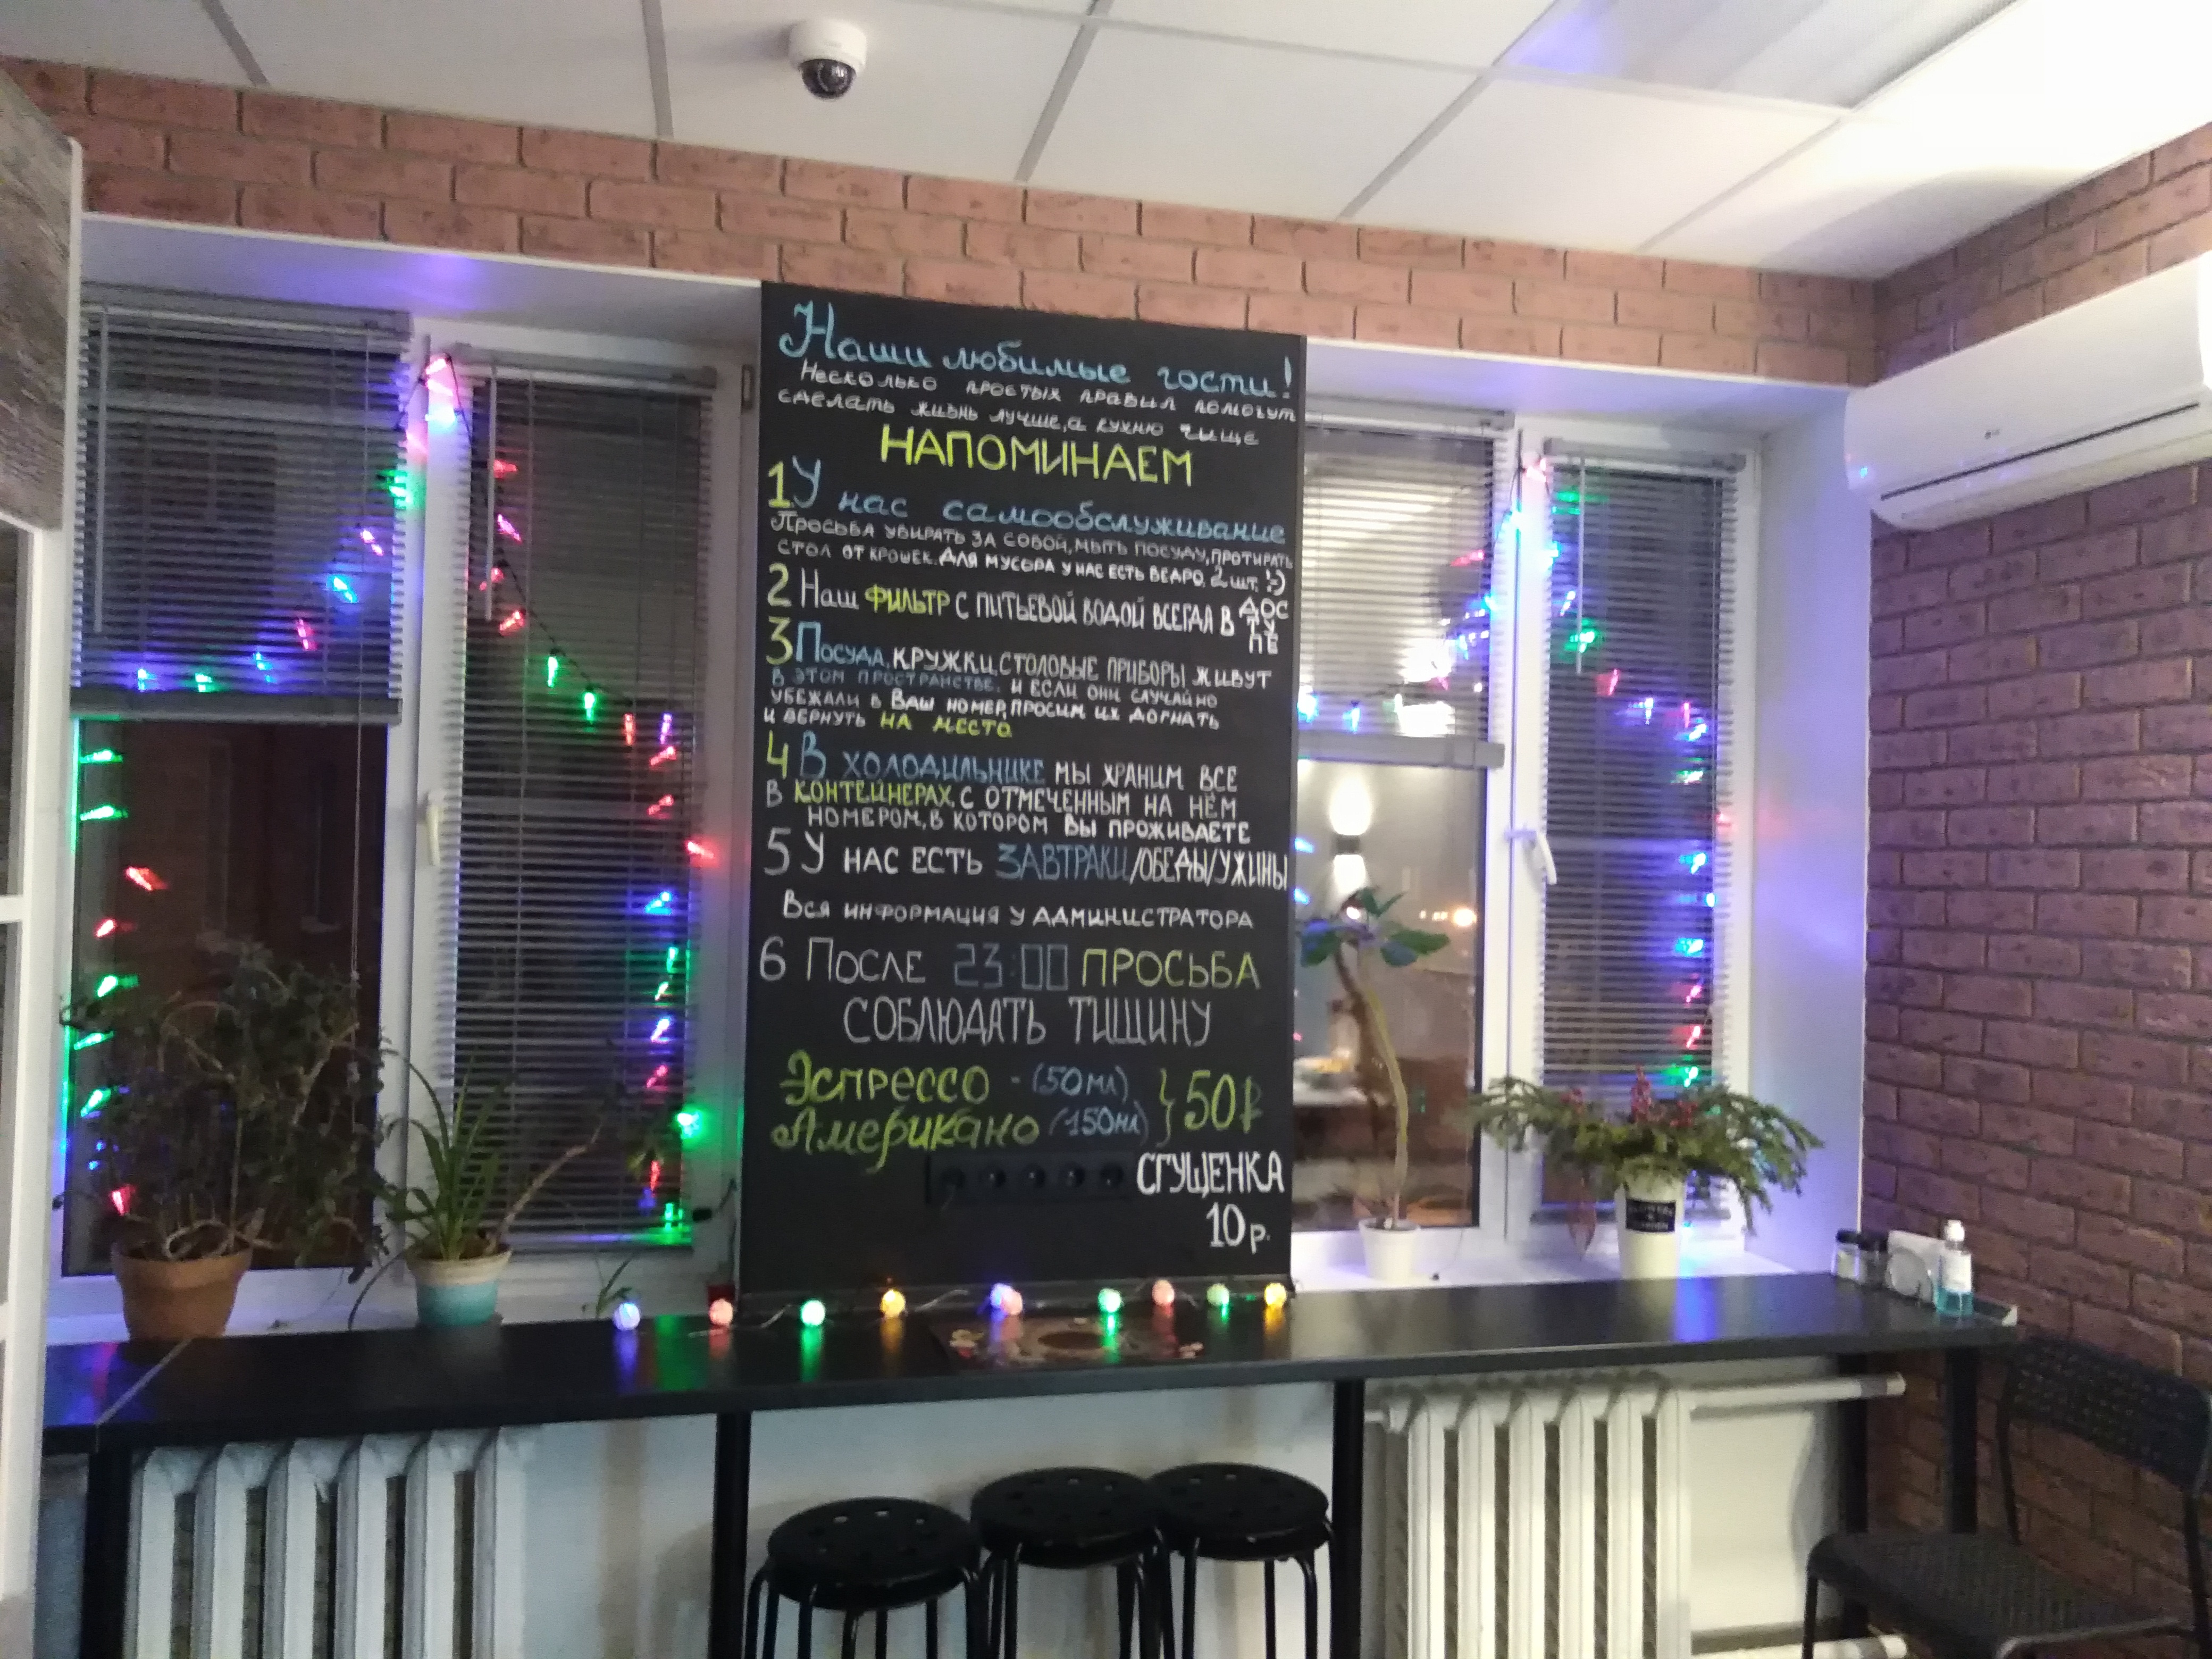 Наши любимые гости!
Несколько простых правил помогут
сделать жизнь лучше, а кухню чище
НАПОМИНАЕМ
1 У нас самообслуживание
Просьба убирать за собой, мыть посуду, протирать
стол от крошек. Для мусора у нас есть ведро, 2 шт. :-)
2 Наш ФИЛЬТР С ПИТЬЕВОЙ ВОДОЙ ВСЕГДА В ДОС
ТУ
ПЕ
3 Посуда, кружки, столовые приборы живут
в этом пространстве, и если они случайно
убежали в Ваш номер, просим их догнать
и вернуть на место
4 В холодильнике мы храним все
в контейнерах, с отмеченным на нём
номером, в котором Вы проживаете
5 У нас есть ЗАВТРАКИ/ОБЕДЫ/УЖИНЫ
Вся информация у администратора
6 После 23:00 ПРОСЬБА
СОБЛЮДАТЬ ТИШИНУ
Эспрессо - (50мл) } 50₽
Американо (150мл)
СГУЩЕНКА
10р.